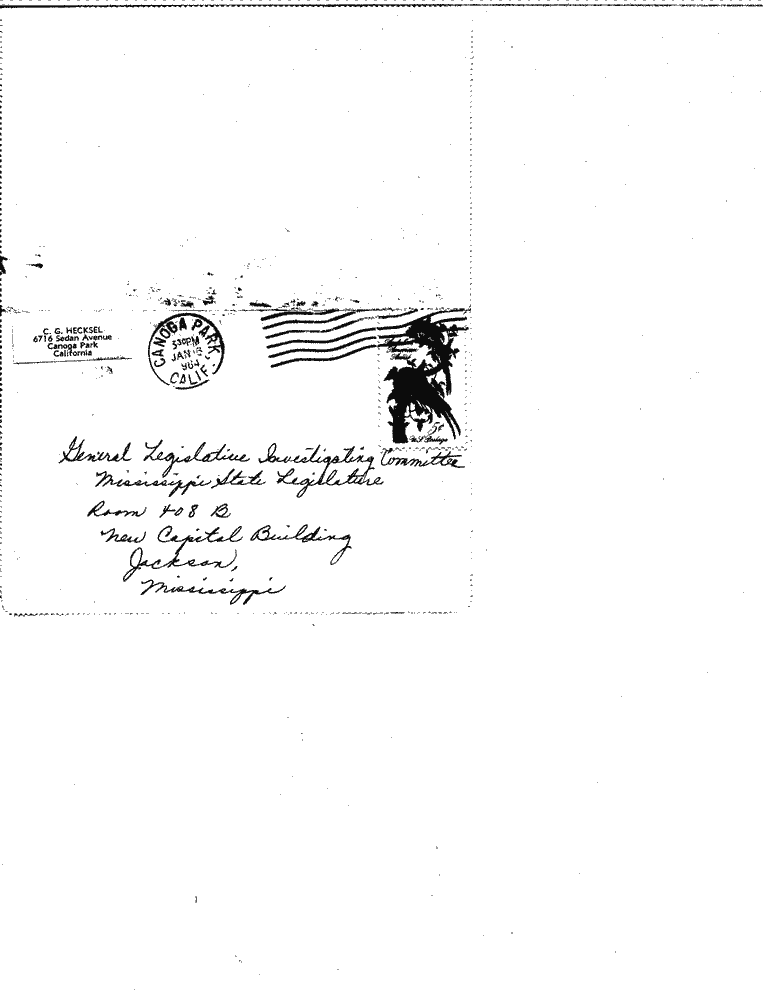 C. G. HECKSEL
6716 Sedan Avenue
Canoga Park
California
CANOGA PARK
330PM
JAN
CALIF.
5¢
U.S. Postage
General Legislative Investigating Committee
Mississippi State Legislature
Room 408 B
New Capital Building
Jackson,
Mississippi